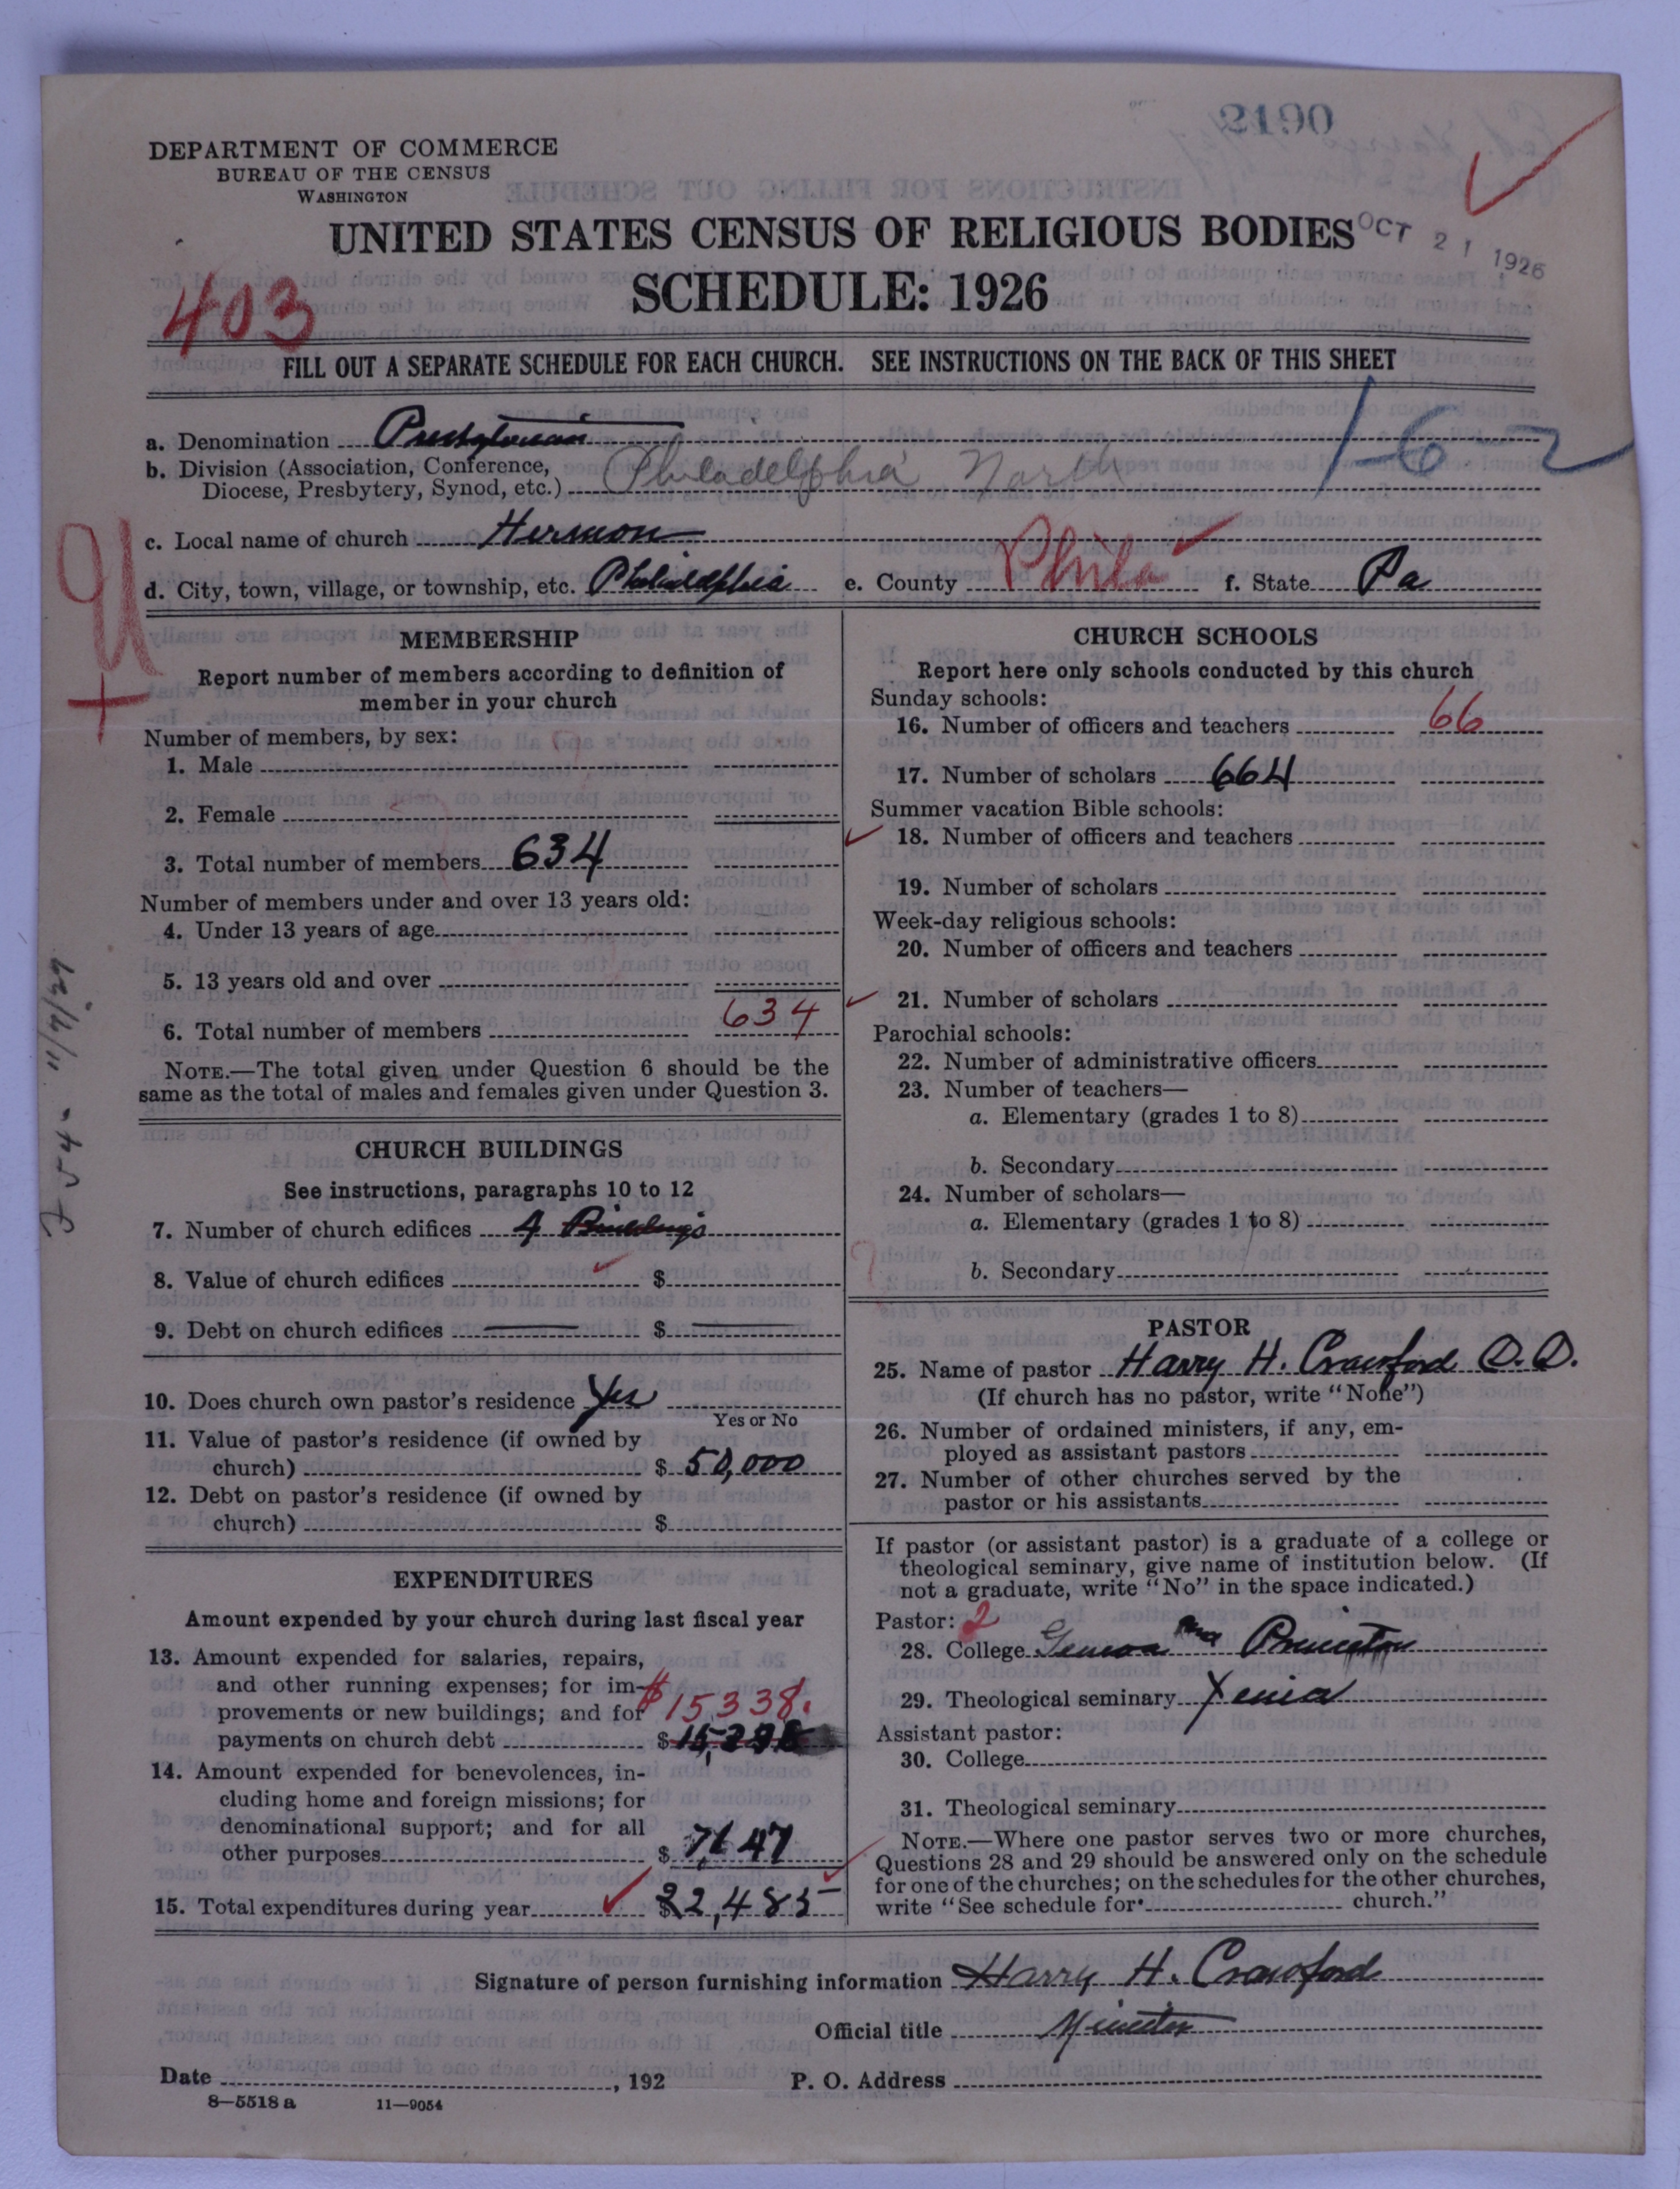 2190
DEPARTMENT OF COMMERCE
BUREAU OF THE CENSUS
WASHINGTON
UNITED STATES CENSUS OF RELIGIOUS BODIES
OCT 21 1926
SCHEDULE: 1926
403
FILL OUT A SEPARATE SCHEDULE FOR EACH CHURCH. SEE INSTRUCTIONS ON THE BACK OF THIS SHEET
1-6-2
a. Denomination Presbyterian
b. Division (Association, Conference,
Diocese, Presbytery, Synod, etc.) Philadelphia North
c. Local name of church Hermon
d. City, town, village, or township, etc. Philadelphia e. County Phila f. State Pa
MEMBERSHIP
Report number of members according to definition of
member in your church
Number of members, by sex:
1. Male
2. Female
3. Total number of members 634
Number of members under and over 13 years old:
4. Under 13 years of age
5. 13 years old and over
6. Total number of members 634
NOTE.—The total given under Question 6 should be the
same as the total of males and females given under Question 3.
CHURCH BUILDINGS
See instructions, paragraphs 10 to 12
7. Number of church edifices 4 Buildings
8. Value of church edifices $
9. Debt on church edifices $
10. Does church own pastor's residence Yes
Yes or No
11. Value of pastor's residence (if owned by
church) $ 50,000
12. Debt on pastor's residence (if owned by
church) $
EXPENDITURES
Amount expended by your church during last fiscal year
13. Amount expended for salaries, repairs,
and other running expenses; for im-
provements or new buildings; and for $15338.
payments on church debt $
14. Amount expended for benevolences, in-
cluding home and foreign missions; for
denominational support; and for all
other purposes $ 7,147
15. Total expenditures during year $22,485
CHURCH SCHOOLS
Report here only schools conducted by this church
Sunday schools:
16. Number of officers and teachers 66
17. Number of scholars 664
Summer vacation Bible schools:
18. Number of officers and teachers
19. Number of scholars
Week-day religious schools:
20. Number of officers and teachers
21. Number of scholars
Parochial schools:
22. Number of administrative officers
23. Number of teachers—
a. Elementary (grades 1 to 8)
b. Secondary
24. Number of scholars—
a. Elementary (grades 1 to 8)
b. Secondary
PASTOR
25. Name of pastor Harry H. Crawford D.D.
(If church has no pastor, write "None")
26. Number of ordained ministers, if any, em-
ployed as assistant pastors
27. Number of other churches served by the
pastor or his assistants
If pastor (or assistant pastor) is a graduate of a college or
theological seminary, give name of institution below. (If
not a graduate, write "No" in the space indicated.)
Pastor: 2
28. College Geneva and Princeton
29. Theological seminary Xenia
Assistant pastor:
30. College
31. Theological seminary
NOTE.—Where one pastor serves two or more churches,
Questions 28 and 29 should be answered only on the schedule
for one of the churches; on the schedules for the other churches,
write "See schedule for church."
Signature of person furnishing information Harry H. Crawford
Official title Minister
Date , 192
P. O. Address
8—5518 a 11—9054